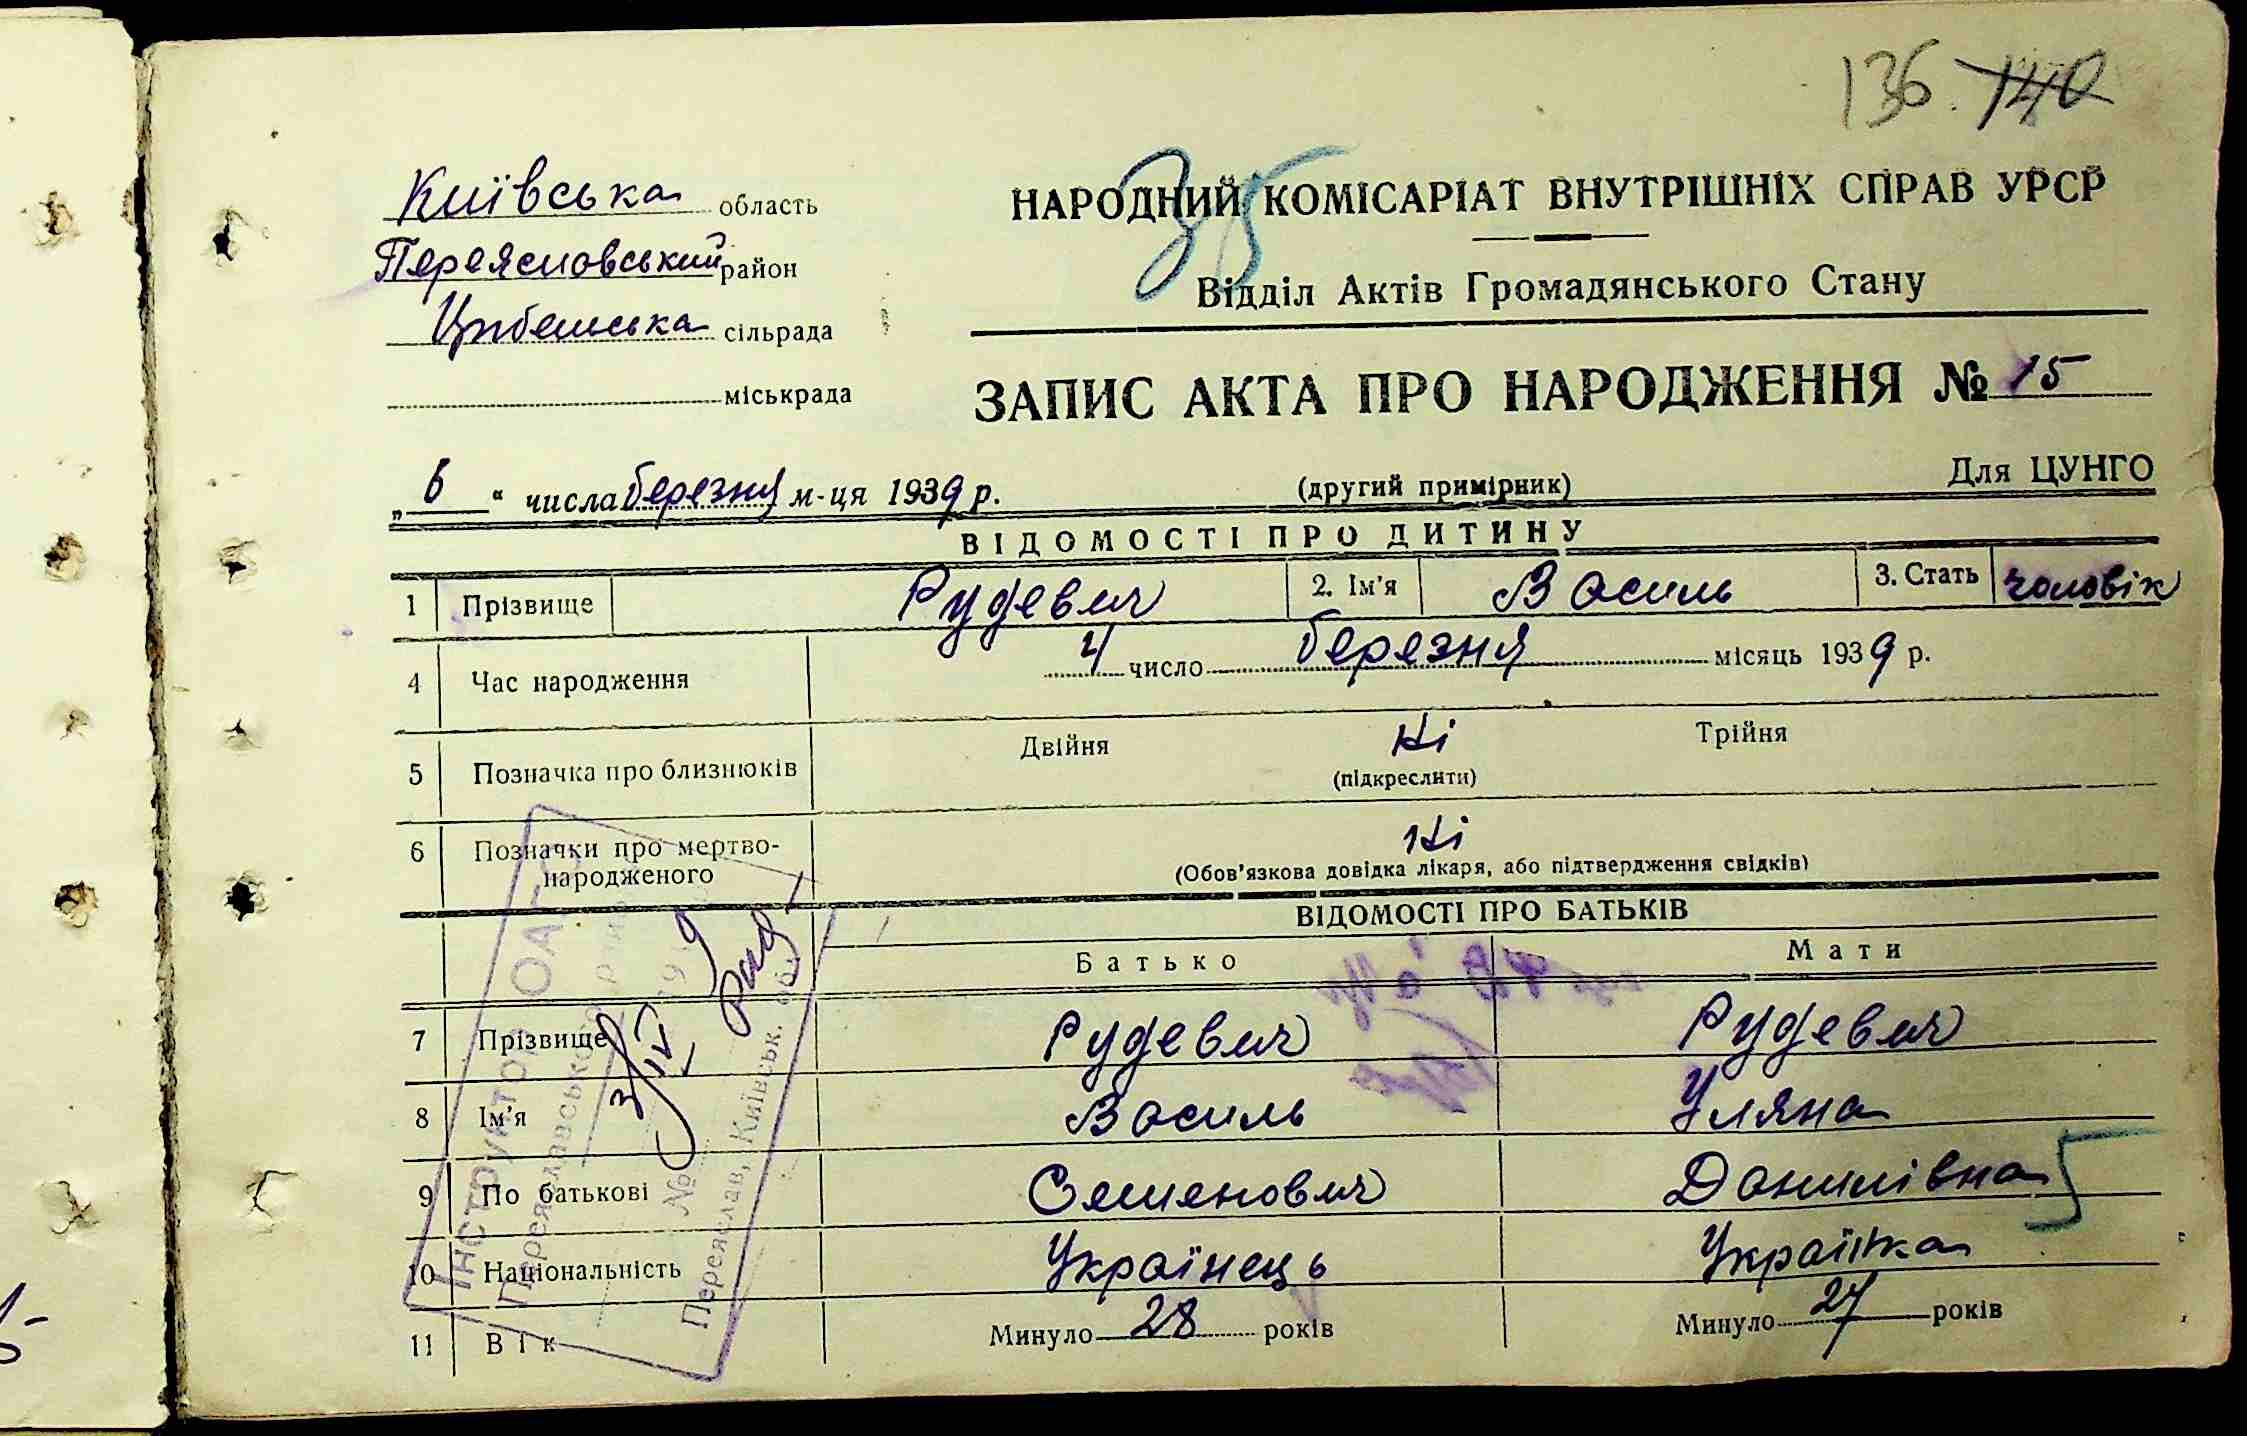 136 140
35
Київська область
Переясловський район
Цибельська сільрада
міськрада
НАРОДНИЙ КОМІСАРІАТ ВНУТРІШНІХ СПРАВ УРСР
Відділ Актів Громадянського Стану
ЗАПИС АКТА ПРО НАРОДЖЕННЯ № 15
„6“ числа березня м-ця 1939 р. (другий примірник) Для ЦУНГО
ВІДОМОСТІ ПРО ДИТИНУ
1 Прізвище Рудевич 2. Ім'я Василь 3. Стать чоловік
4 Час народження 4 число березня місяць 1939 р.
5 Позначка про близнюків Двійня Ні Трійня
(підкреслити)
6 Позначки про мертво-
народженого Ні
(Обов'язкова довідка лікаря, або підтвердження свідків)
ВІДОМОСТІ ПРО БАТЬКІВ
Батько Мати
7 Прізвище Рудевич Рудевич
8 Ім'я Василь Уляна
9 По батькові Семенович Данилівна
10 Національність Українець Українка
11 Вік Минуло 28 років Минуло 27 років
Інструктор ОАГС
Переяславського
3/IV 1939
№
Переяслав, Київськ. обл.
5